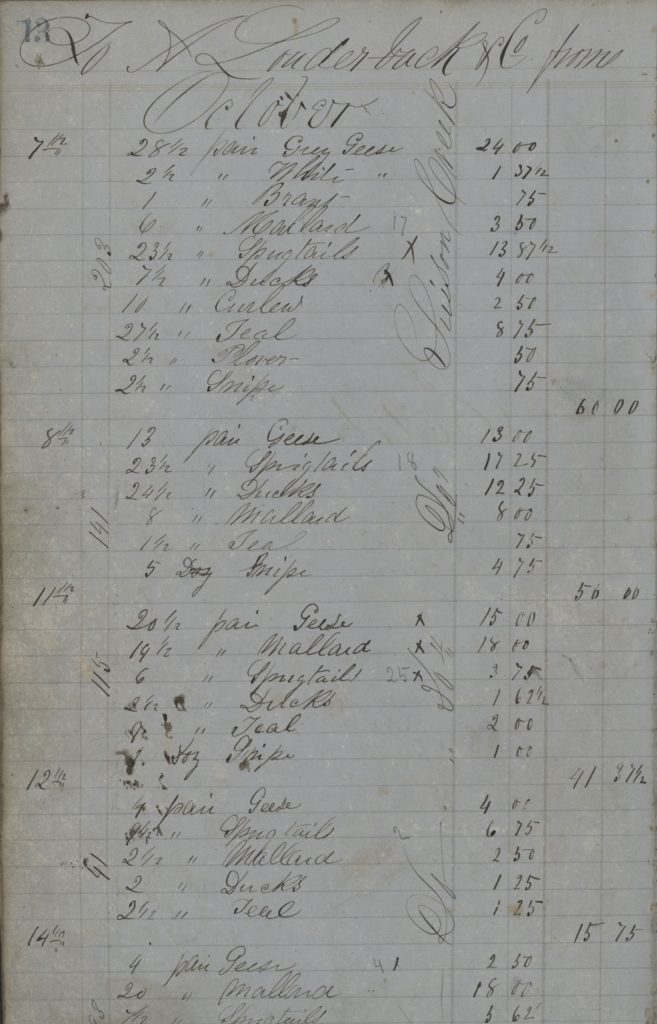 13
To A Louderback & Co from
October
Suison Creek
7 th 28 1/2 pair Grey Geese 24 00
2 1/2 " White " 1 37 1/2
1 " Brant 75
6 " Mallard 17 3 50
203
23 1/2 " Sprigtails X 13 87 1/2
7 1/2 " Ducks X 4 00
10 " Curlew 2 50
27 1/2 " Teal 8 75
2 1/2 " Plover 50
2 1/2 " Snipe 75
60 00
8 th 13 pair Geese 13 00
23 1/2 " Sprigtails 18 17 25
24 1/2 " Ducks 12 25
Do "
8 " Mallard 8 00
141
1 1/2 " Teal 75
5 Doz Snipe 4 75
56 00
11 th
20 1/2 pair Geese x 15 00
19 1/2 " Mallard x 18 00
115
6 " Sprigtails 25 x 3 75
Do "
2 1/2 " Ducks 1 62 1/2
" Teal 2 00
Doz Snipe " 1 00
41 37 1/2
12 th
4 pair Geese 4 00
9 1/2 " Sprigtails 2 6 75
2 1/2 " Mallard 2 50
91
2 " Ducks 1 25
Do
2 1/2 " Teal 1 25
15 75
14 th
4 pair Geese 41 2 50
20 " Mallard " 18 00
7 1/2 " Sprigtails 5 62